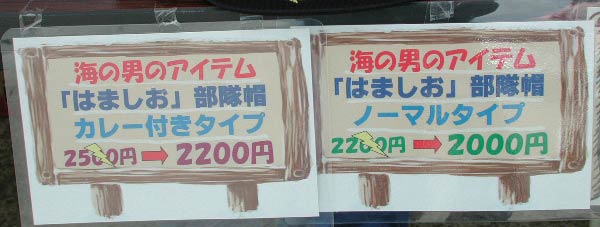 海の男のアイテム
「はましお」部隊帽
カレー付きタイプ
2500円 2200円
海の男のアイテム
「はましお」部隊帽
ノーマルタイプ
2200円 2000円